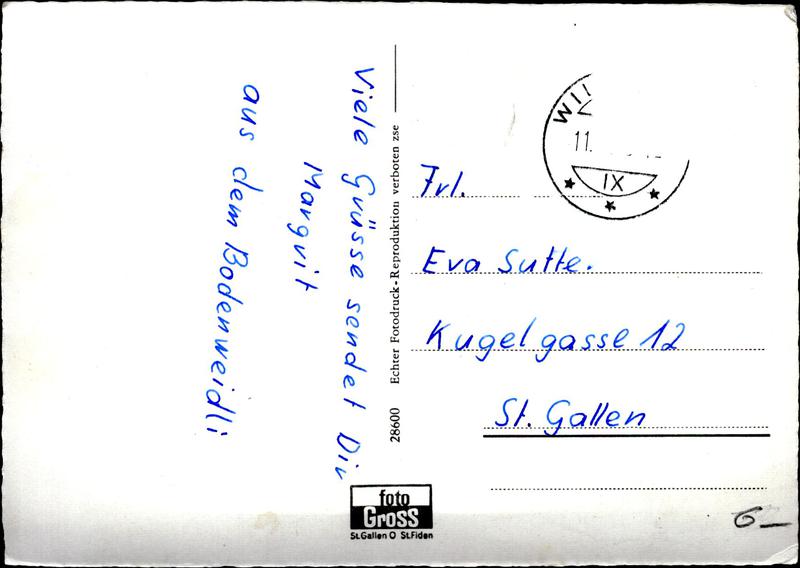 Viele Grüsse sendet Dir
Margrit
aus dem Bodenweidli
Echter Fotodruck - Reproduktion verboten zse
28600
foto
Gross
St.Gallen O St.Fiden
WIL
11.
IX
Frl.
Eva Sutte.
Kugelgasse 12
St. Gallen
6—